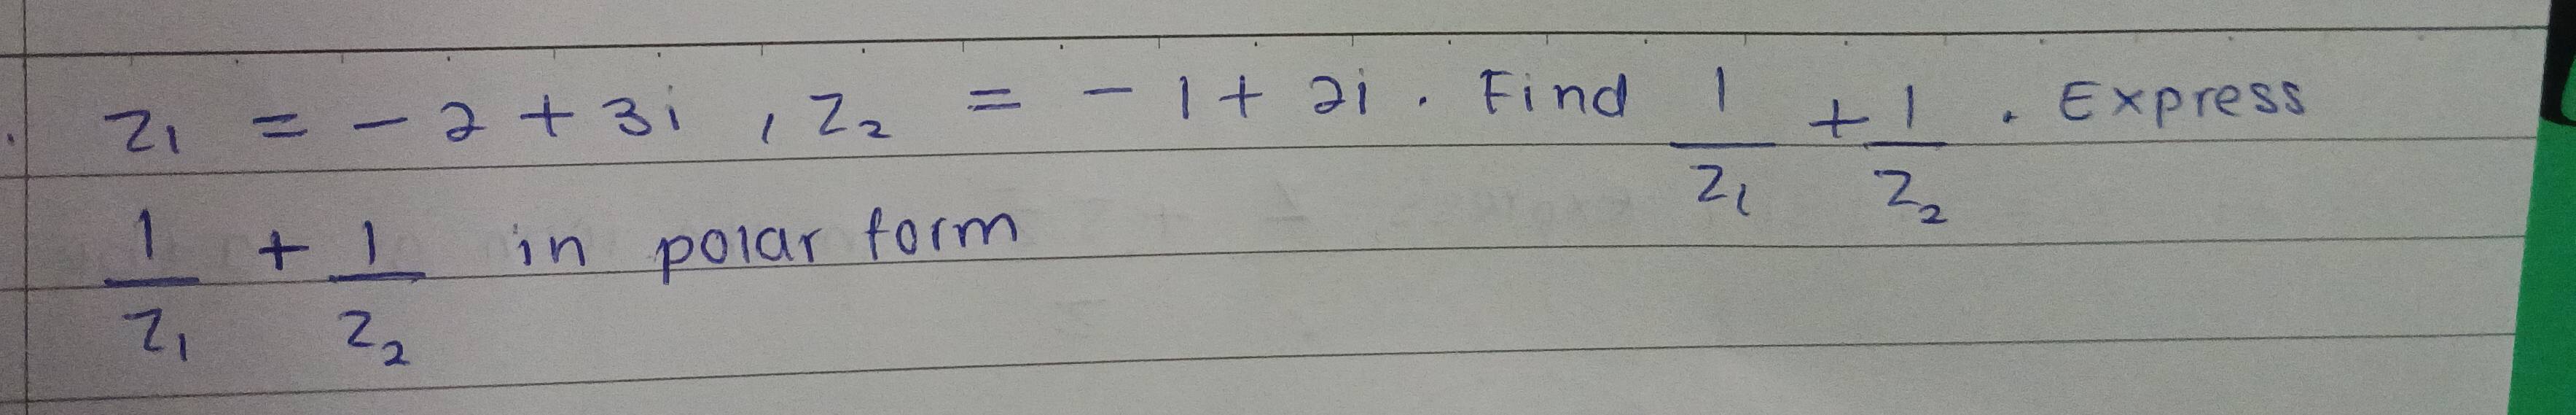 z₁ = - 2 + 3i , z₂ = - 1 + 2i . Find 1/z₁ + 1/z₂ . Express
1/z₁ + 1/z₂ in polar form